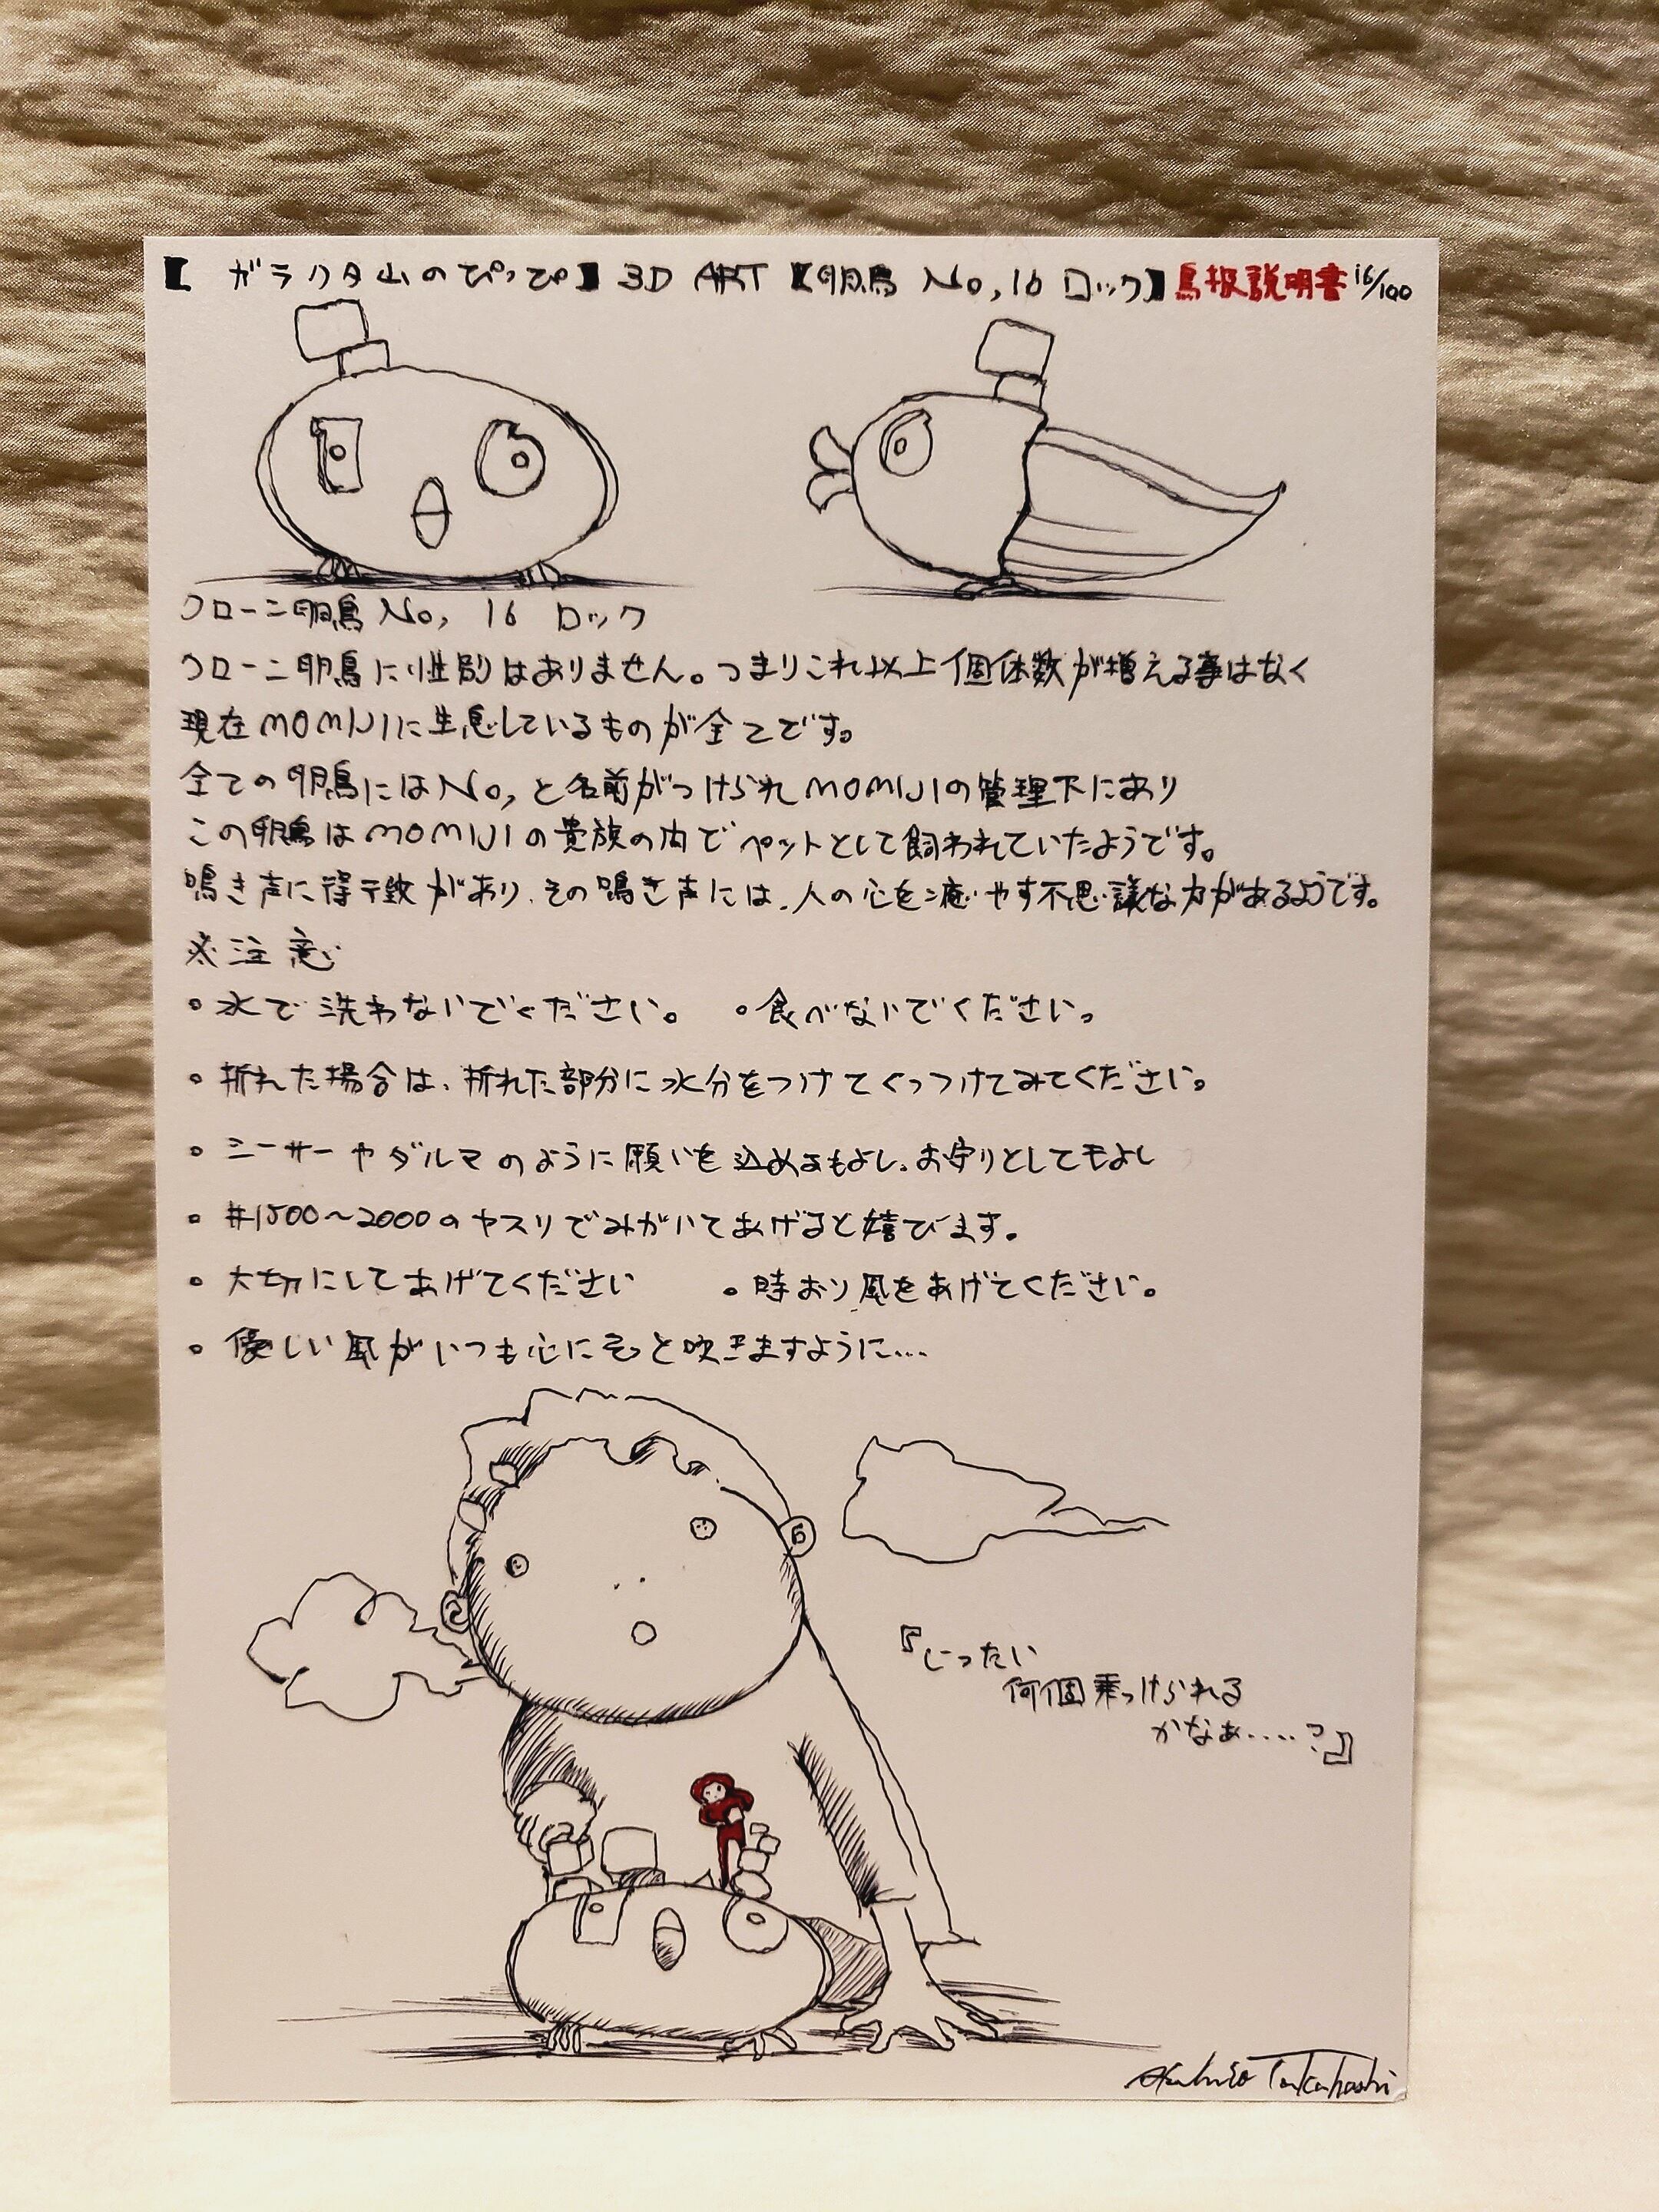 【ガラクタ山のぴっぴ】3D ART【卵鳥 No,16 ロック】鳥扱説明書 16/100
クローン卵鳥 No, 16 ロック
クローン卵鳥に性別はありません。つまりこれ以上個体数が増える事はなく
現在MOMIJIに生息しているものが全てです。
全ての卵鳥にはNo,と名前がつけられMOMIJIの管理下にあり
この卵鳥はMOMIJIの貴族の内でペットとして飼われていたようです。
鳴き声に特徴があり、その鳴き声には、人の心を癒やす不思議な力があるようです。
※注意
・水で洗わないでください。 ・食べないでください。
・折れた場合は、折れた部分に水分をつけてくっつけてみてください。
・シーサーやダルマのように願いを込めるもよし、お守りとしてもよし
・#1500〜2000のヤスリでみがいてあげると喜びます。
・大切にしてあげてください ・時おり風をあげてください。
・優しい風がいつも心にそっと吹きますように...
『じったい
何個乗っけられる
かなぁ.....?』
Takahashi